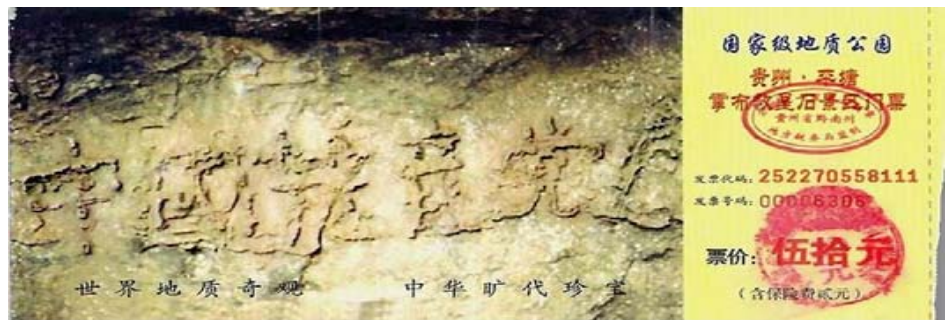 中国共産党
世界地质奇观 中华旷代珍宝
国家级地质公园
贵州·平塘
掌布救星石景区门票
贵州省黔南州
地方税务局监制
发票代码：252270558111
发票号码：00006306
票价：伍拾元
（含保险费贰元）